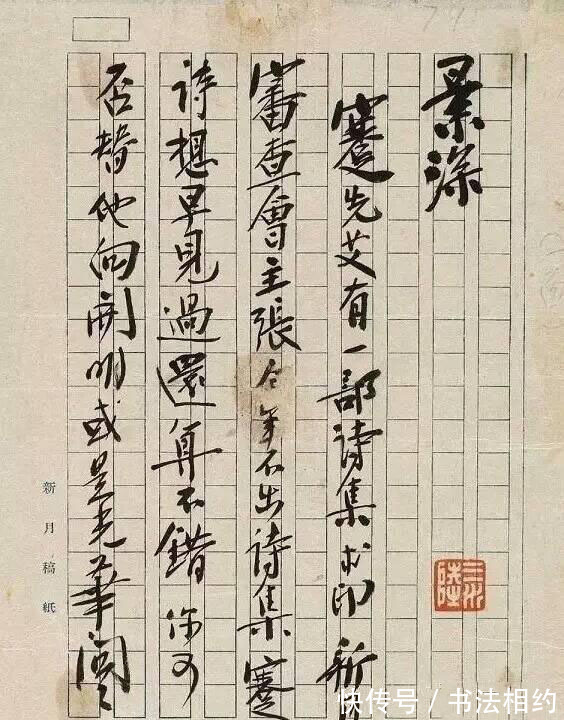 景深
蹇先艾有一部诗集求印 新
審查會主張今年不出诗集蹇
诗想早見過還算不錯 你可
否替他向開明或是光華問
新月稿紙
快传号 / 书法相约